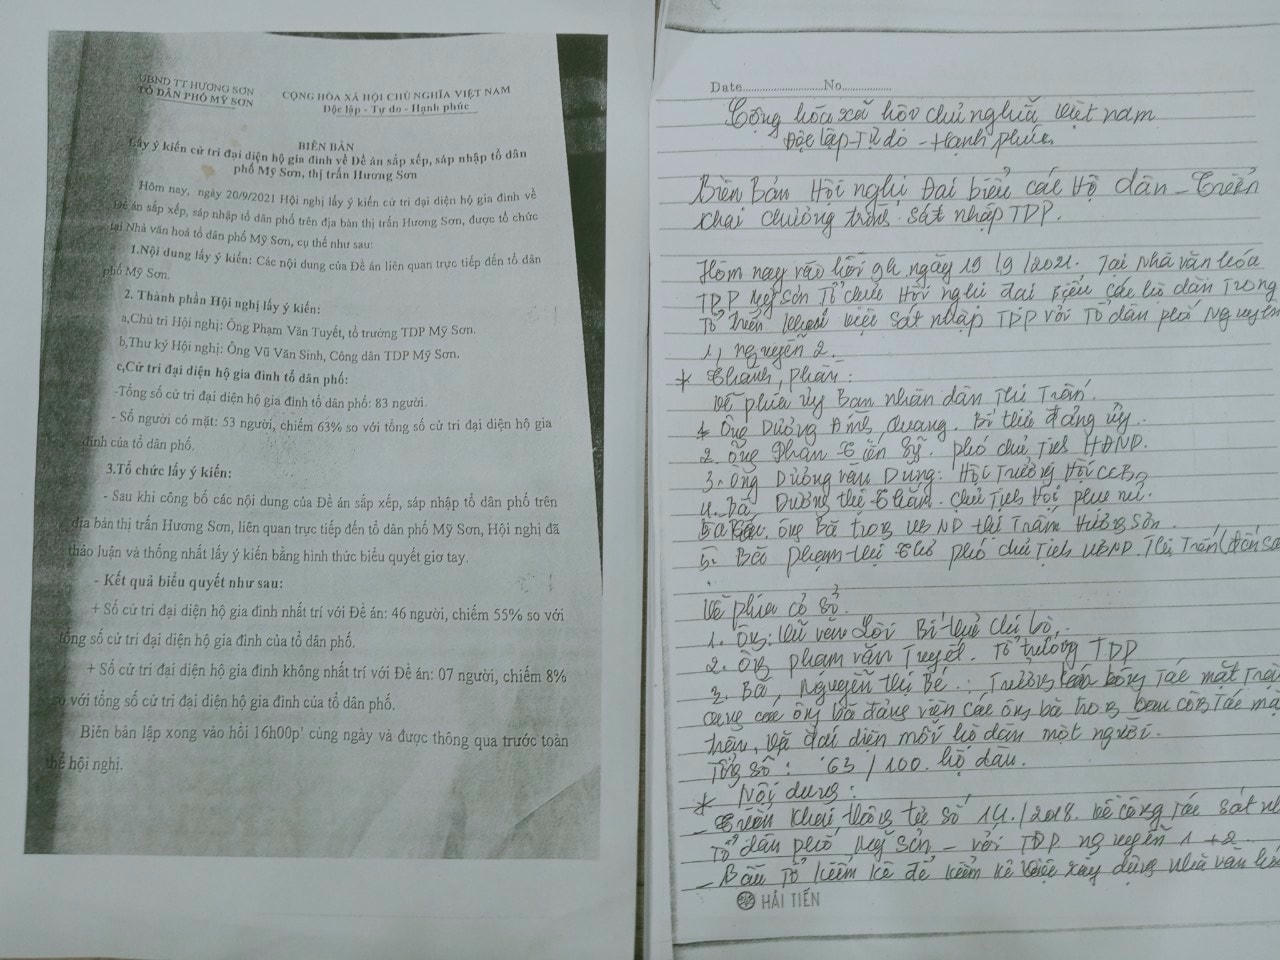 UBND TT HƯƠNG SƠN
TỔ DÂN PHỐ MỸ SƠN
CỘNG HÒA XÃ HỘI CHỦ NGHĨA VIỆT NAM
Độc lập - Tự do - Hạnh phúc
BIÊN BẢN
Lấy ý kiến cử tri đại diện hộ gia đình về Đề án sắp xếp, sáp nhập tổ dân
phố Mỹ Sơn, thị trấn Hương Sơn
Hôm nay, ngày 20/9/2021 Hội nghị lấy ý kiến cử tri đại diện hộ gia đình về
Đề án sắp xếp, sáp nhập tổ dân phố trên địa bàn thị trấn Hương Sơn, được tổ chức
tại Nhà văn hoá tổ dân phố Mỹ Sơn, cụ thể như sau:
1.Nội dung lấy ý kiến: Các nội dung của Đề án liên quan trực tiếp đến tổ dân
phố Mỹ Sơn.
2. Thành phần Hội nghị lấy ý kiến:
a,Chủ trì Hội nghị: Ông Phạm Văn Tuyết, tổ trưởng TDP Mỹ Sơn.
b,Thư ký Hội nghị: Ông Vũ Văn Sinh, Công dân TDP Mỹ Sơn.
c,Cử tri đại diện hộ gia đình tổ dân phố:
-Tổng số cử tri đại diện hộ gia đình tổ dân phố: 83 người.
- Số người có mặt: 53 người, chiếm 63% so với tổng số cử tri đại diện hộ gia
đình của tổ dân phố.
3.Tổ chức lấy ý kiến:
- Sau khi công bố các nội dung của Đề án sắp xếp, sáp nhập tổ dân phố trên
địa bàn thị trấn Hương Sơn, liên quan trực tiếp đến tổ dân phố Mỹ Sơn, Hội nghị đã
thảo luận và thống nhất lấy ý kiến bằng hình thức biểu quyết giơ tay.
- Kết quả biểu quyết như sau:
+ Số cử tri đại diện hộ gia đình nhất trí với Đề án: 46 người, chiếm 55% so với
tổng số cử tri đại diện hộ gia đình của tổ dân phố.
+ Số cử tri đại diện hộ gia đình không nhất trí với Đề án: 07 người, chiếm 8%
so với tổng số cử tri đại diện hộ gia đình của tổ dân phố.
Biên bản lập xong vào hồi 16h00p' cùng ngày và được thông qua trước toàn
thể hội nghị.
Date No
Cộng hòa xã hội chủ nghĩa Việt nam
Độc lập - Tự do - Hạnh phúc
Biên Bản Hội nghị Đại biểu các Hộ dân - Triển
khai chương trình sát nhập TDP.
Hôm nay vào hồi 9h ngày 19/9/2021. Tại Nhà văn hóa
TDP Mỹ Sơn Tổ chức Hội nghị đại Biểu các hộ dân Trong
Tổ Triển khai việc sát nhập TDP với Tổ dân phố Nguyễn
1, nguyễn 2.
* Thành, phần:
Về phía ủy Ban nhân dân Thị Trấn.
1. Ông Dương Quang. Bí thư đảng ủy.
2. Ông Phan Sỹ. phó chủ Tịch HĐND.
3. Ông Dương văn Dũng: Hội Trưởng Hội CCB
4. Bà Dương thị Chủ Tịch Hội phụ nữ.
ông bà trog UBND thị Trấn Hương Sơn.
5. Bà phạm thị phó chủ Tịch UBND. Thị Trấn
Về phía cơ sở.
1. Ông: Vũ văn Lời Bí thư chi bộ,
2. Ông phạm văn Tuyết. Tổ trưởng TDP
3. Bà, Nguyễn thị Bé: Trưởng công Tác mặt Trận
cùng các ông bà đảng viên các ông bà trog ban côg Tác mặt
trận, và đại diện mỗi hộ dân một người.
Tổg số: 63/100. hộ dân.
* Nội dung:
- Triển khai thông tư số 14/2018. về công tác sát
Tổ dân phố Mỹ Sơn - với TDP nguyễn 1 + 2
- Bầu Tổ kiểm kê để kiểm kê việc xây dựng nhà văn hóa
HẢI TIẾN